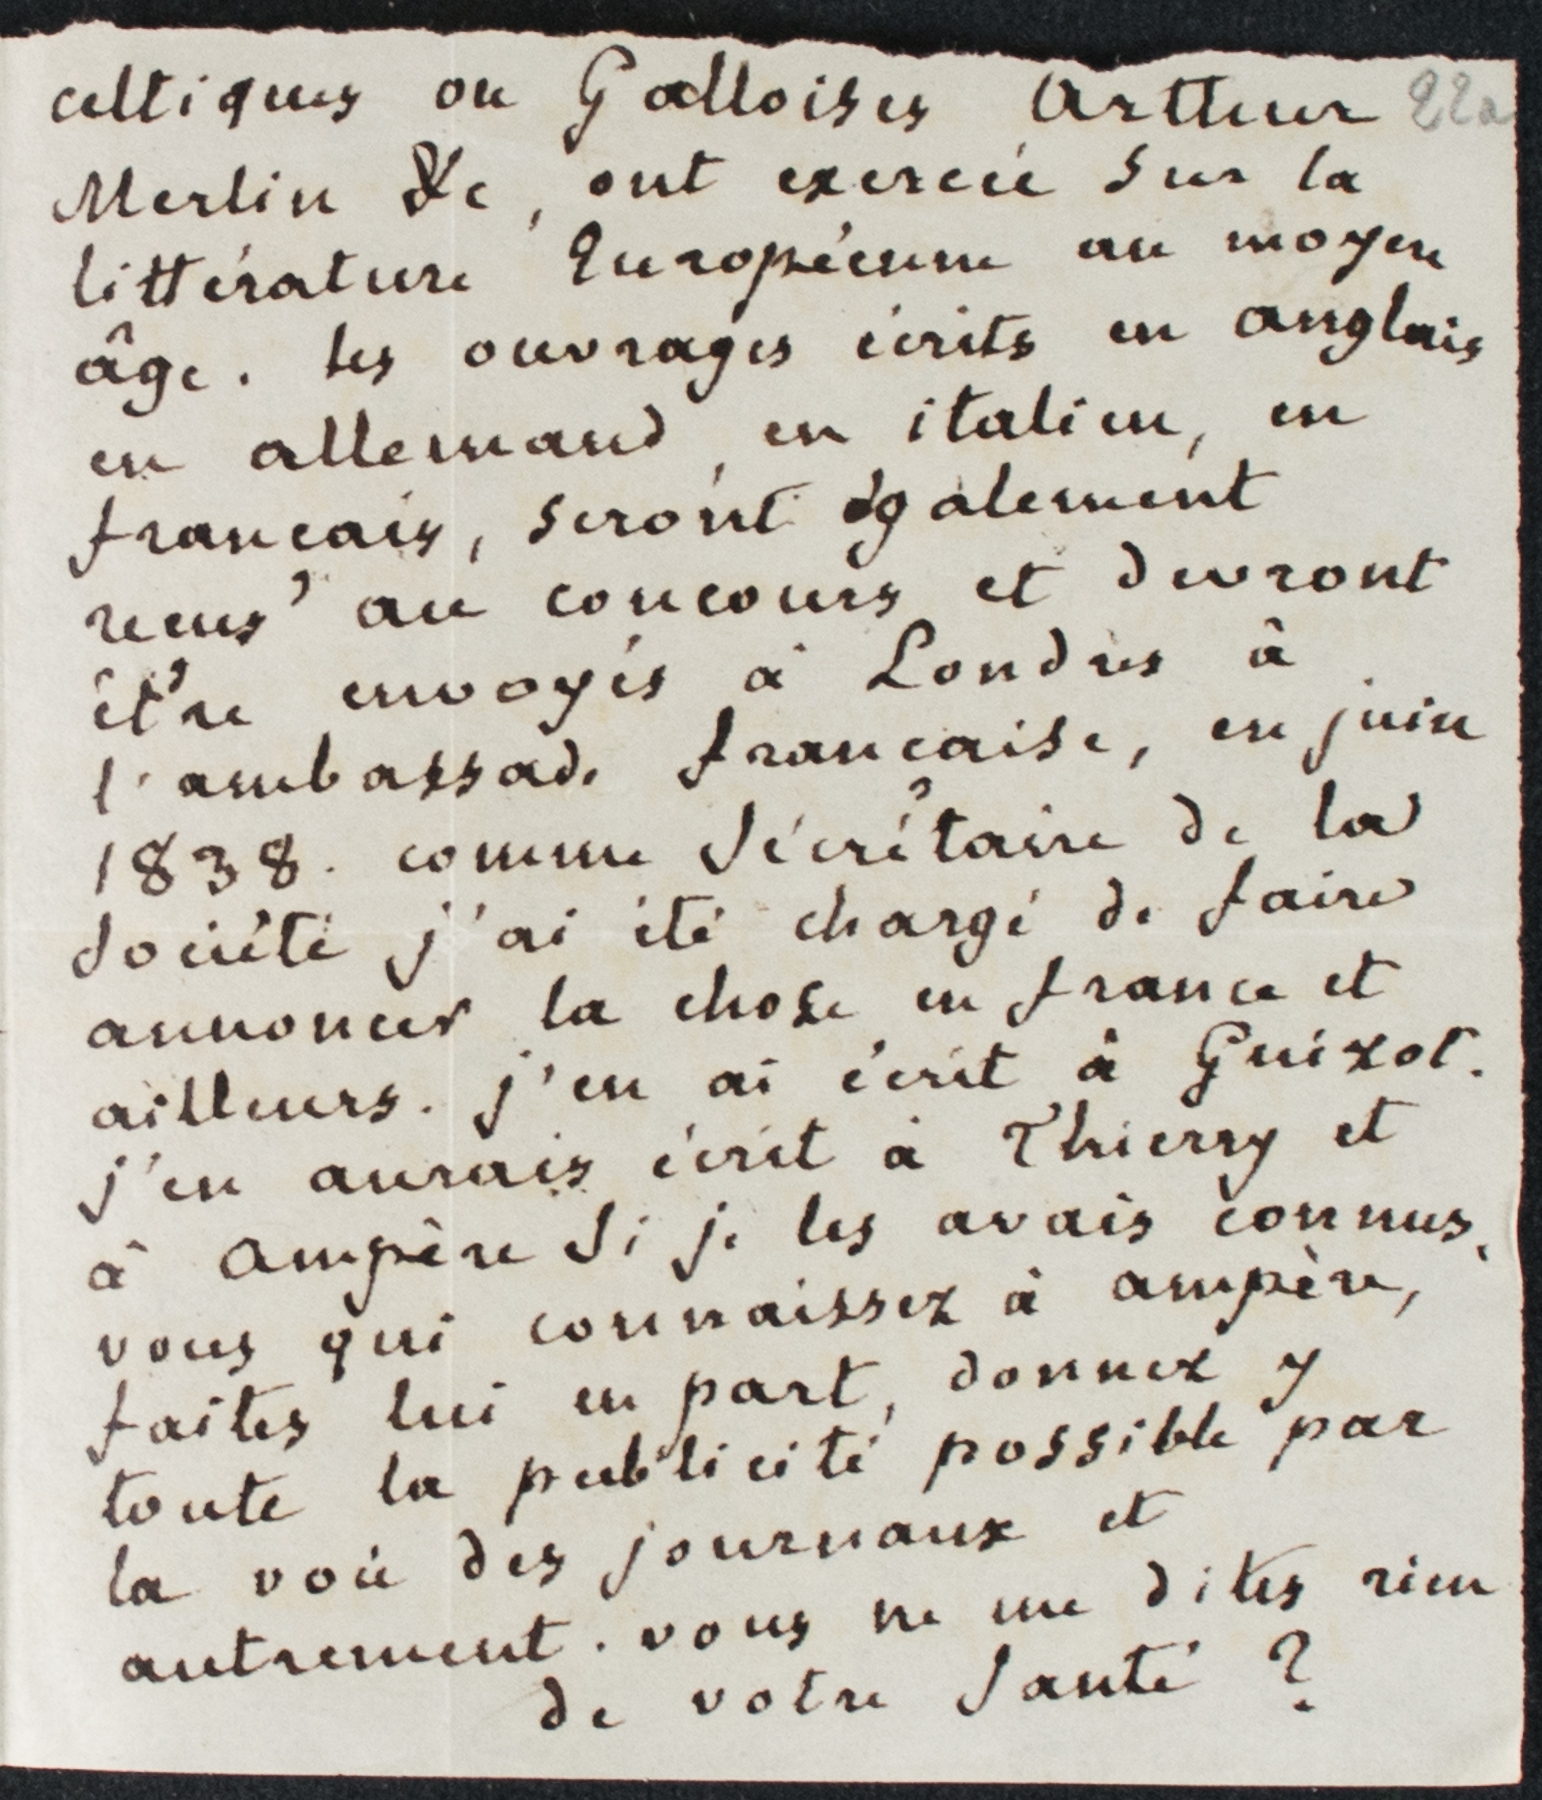 celtiques ou Galloises Artteur 22a
Merlin &c, ont exercée sur la
littérature Européenne au moyen
âge. les ouvrages écrits en anglais
en allemand, en italien, en
français, seront également
reçus au concours et devront
être envoyés à Londres à
l'ambassade française, en juin
1838. comme Sécrétaire de la
Société j'ai été chargé de faire
annoncer la chose en france et
ailleurs. j'en ai écrit à Guizot.
j'en aurais écrit à Thierry et
à Ampère Si je les avais connus.
vous qui connaissez à ampère,
faites lui en part, donnez y
toute la publicité possible par
la voie des journaux et
autrement. vous ne me dites rien
de votre Santé ?